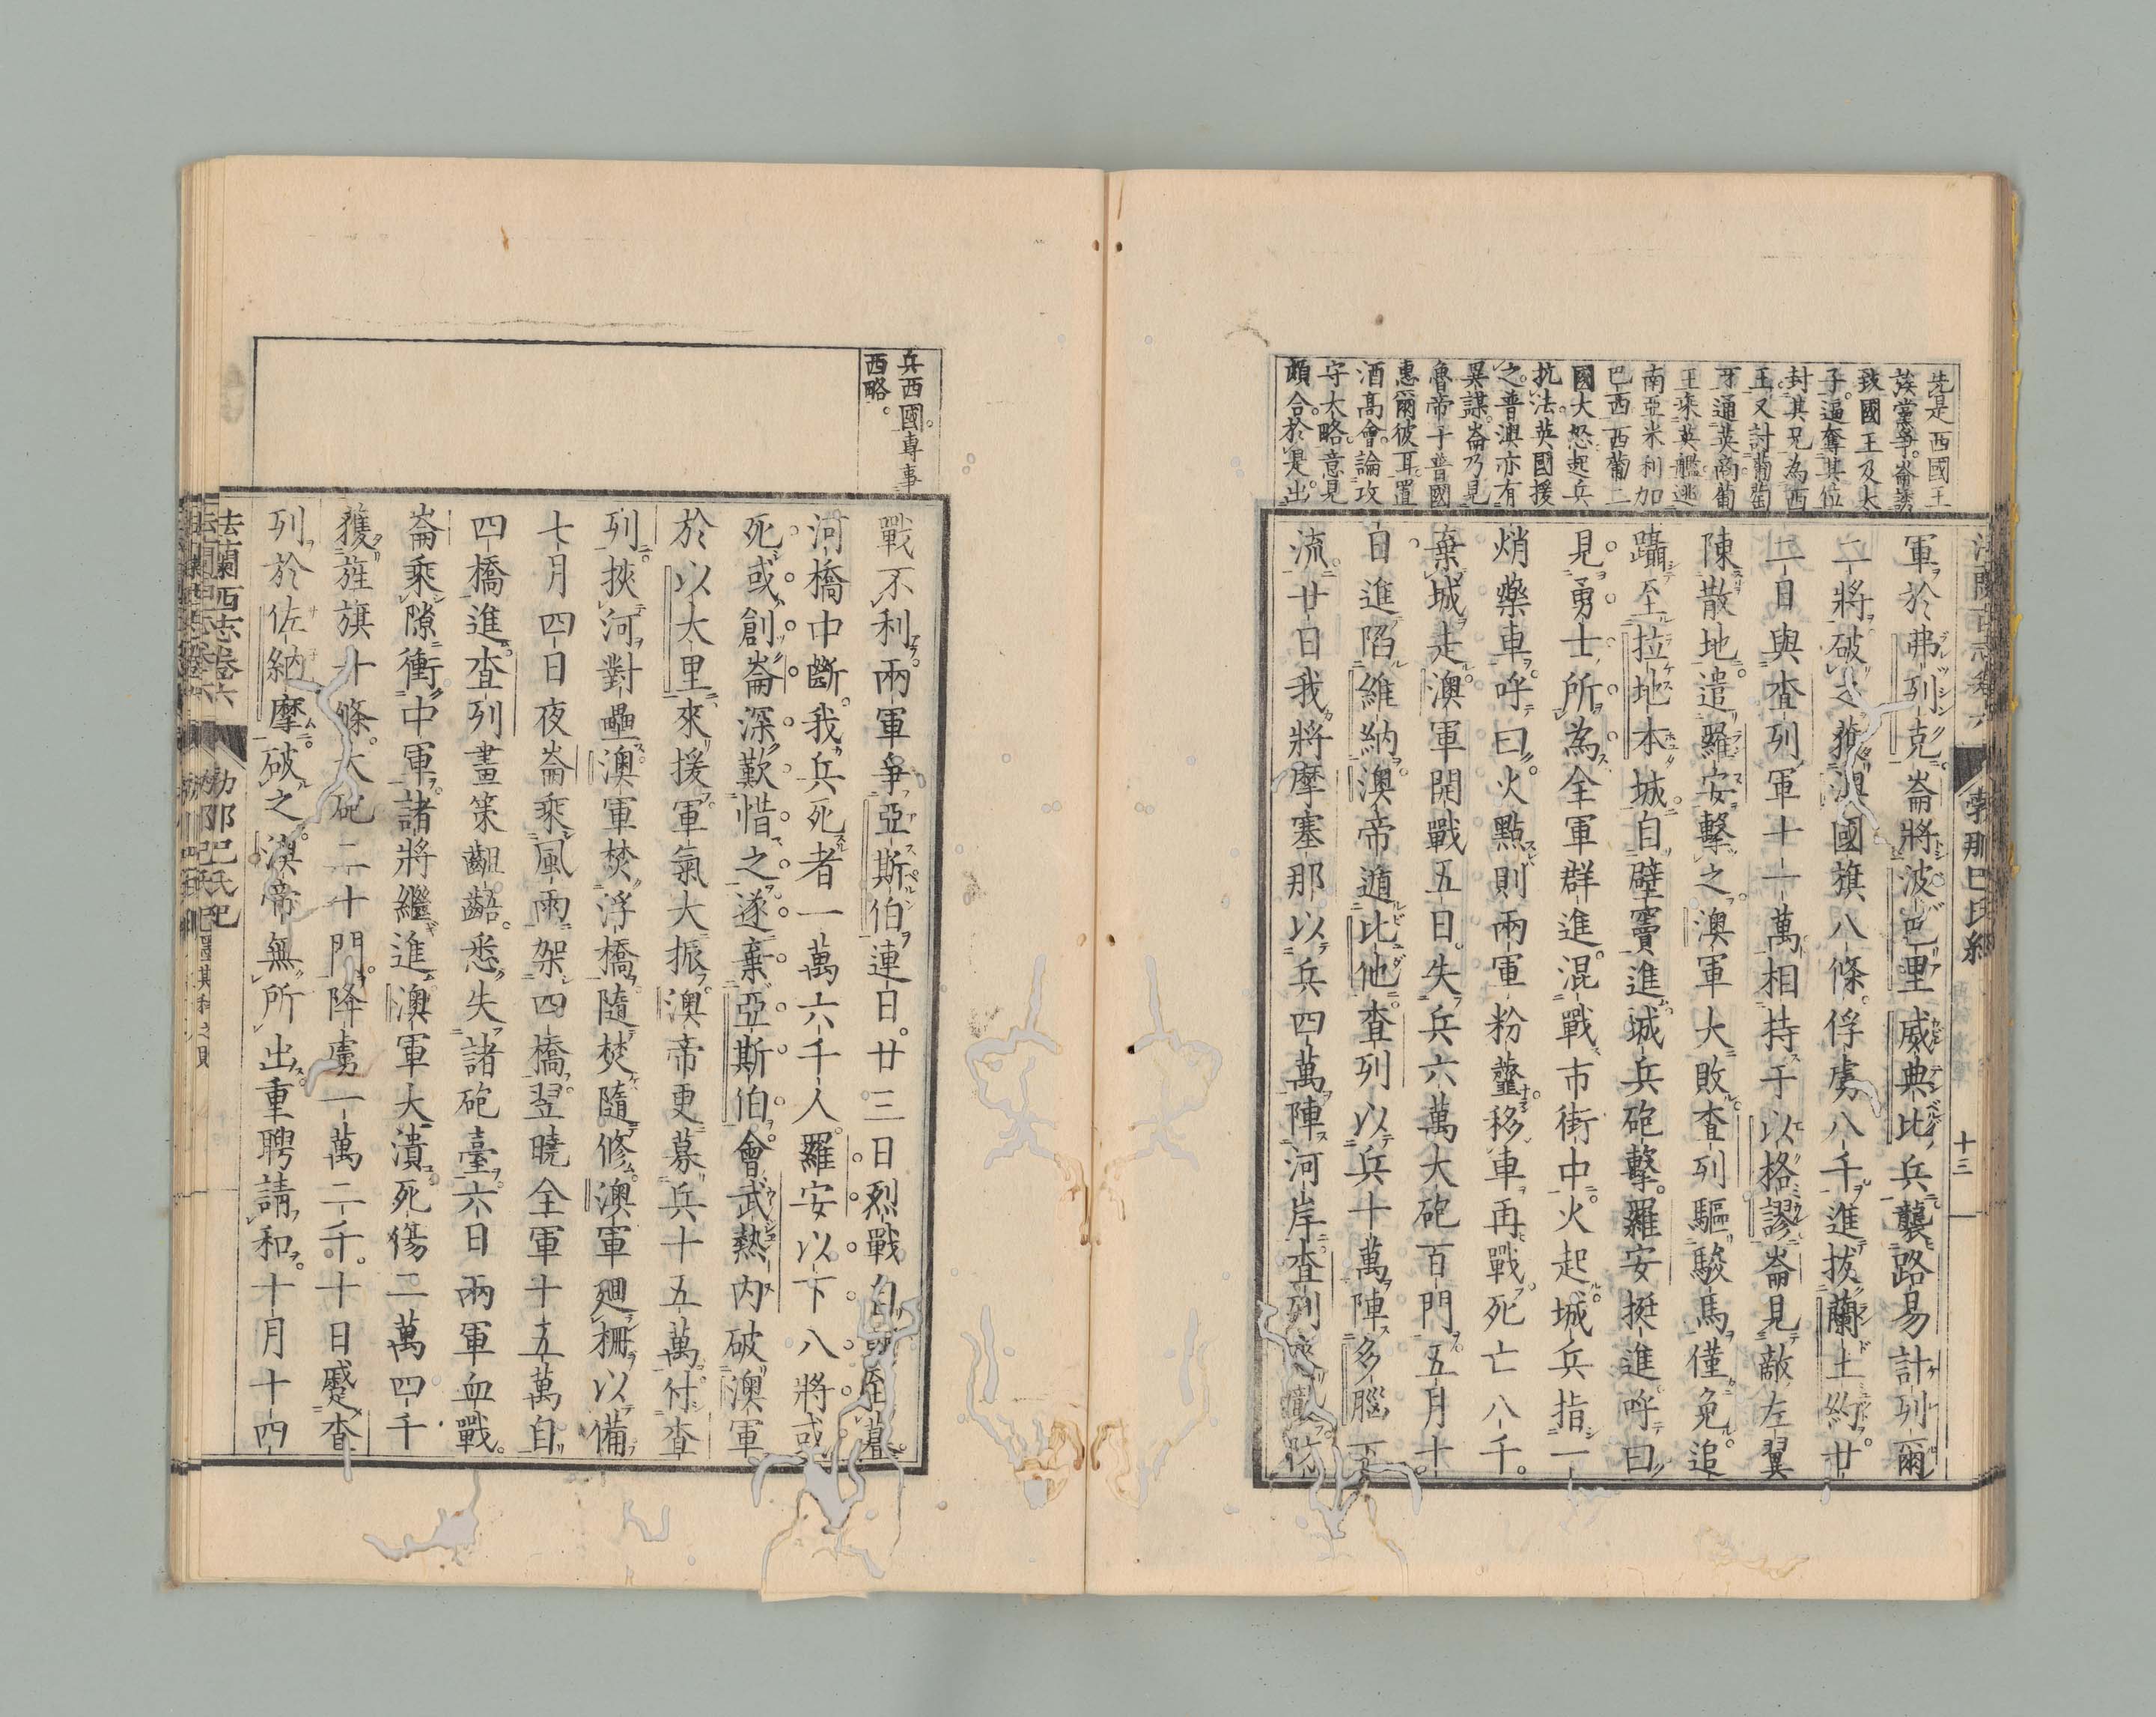 先是西國王
族黨爭。崙誘
致國王及太
子。逼奪其位
封其兄為西
王。又討葡萄
牙通英商葡
王乘英艦逃
南亞米利加
巴西西葡二
國大怒起兵
抗法。英國援
之。普澳亦有
異謀。崙乃見
魯帝于普國
惠爾彼耳。置
酒高會。論攻
守大略意見
頗合。於是出
法蘭西志卷六 勃那巴氏紀 十三
軍於弗列克。崙將波巴里威典比兵襲路易計列爾
二將破之。獲澳國旗八條。俘虜八千進拔蘭土紗。廿
二日與査列軍十一萬相持于以格謬崙見敵左翼
陳散地。遣羅安擊之。澳軍大敗。査列驅駿馬僅免。追
躡至拉地本城。自壁竇進。城兵砲擊。羅安挺進呼曰
見勇士所為。全軍群進。混戰市街中。火起。城兵指一
焇藥車呼曰。火點則兩軍粉韲。移車再戰。死亡八千。
棄城走。澳軍開戰五日。失兵六萬大砲百門。五月十
日進陷維納。澳帝遁比他。査列以兵十萬陣多腦下
流。廿日我將摩塞那以兵四萬陣河岸。査列
兵西國。專事
西略。
戰不利。兩軍爭亞斯伯連日。廿三日烈戰自
河橋中斷。我兵死者一萬六千人。羅安以下八將或
死或創。崙深歎惜之。遂棄亞斯伯。會武熱內破澳軍
於以太里。來援軍氣大振。澳帝更募兵十五萬付査
列。挾河對壘。澳軍焚浮橋。隨焚隨修。澳軍廻柵以備
七月四日夜崙乘風雨架四橋。翌曉全軍十五萬自
四橋進。査列畫策齟齬。悉失諸砲臺。六日兩軍血戰。
崙乘隙衝中軍。諸將繼進。澳軍大潰死傷二萬四千
獲旌旗十條。大砲二十門。降虜一萬二千。十日蹙査
列於佐納摩破之。澳帝無所出。重聘請和。十月十四
法蘭西志卷六 勃那巴氏紀